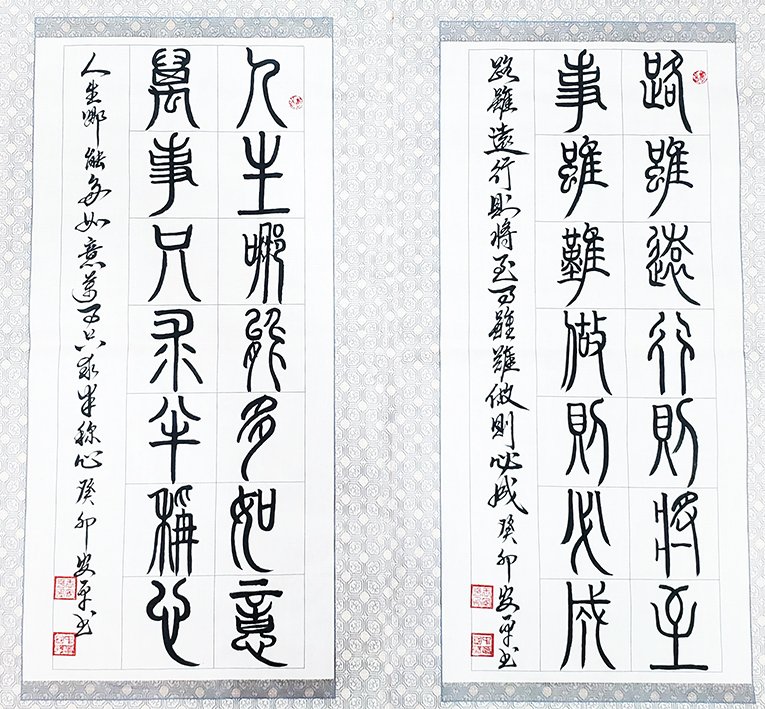 路雖遠行則將至
事雖難做則必成
路雖遠行則將至事雖難做則必成 癸卯安平书
人生哪能多如意
萬事只求半稱心
人生哪能多如意萬事只求半稱心 癸卯安平书